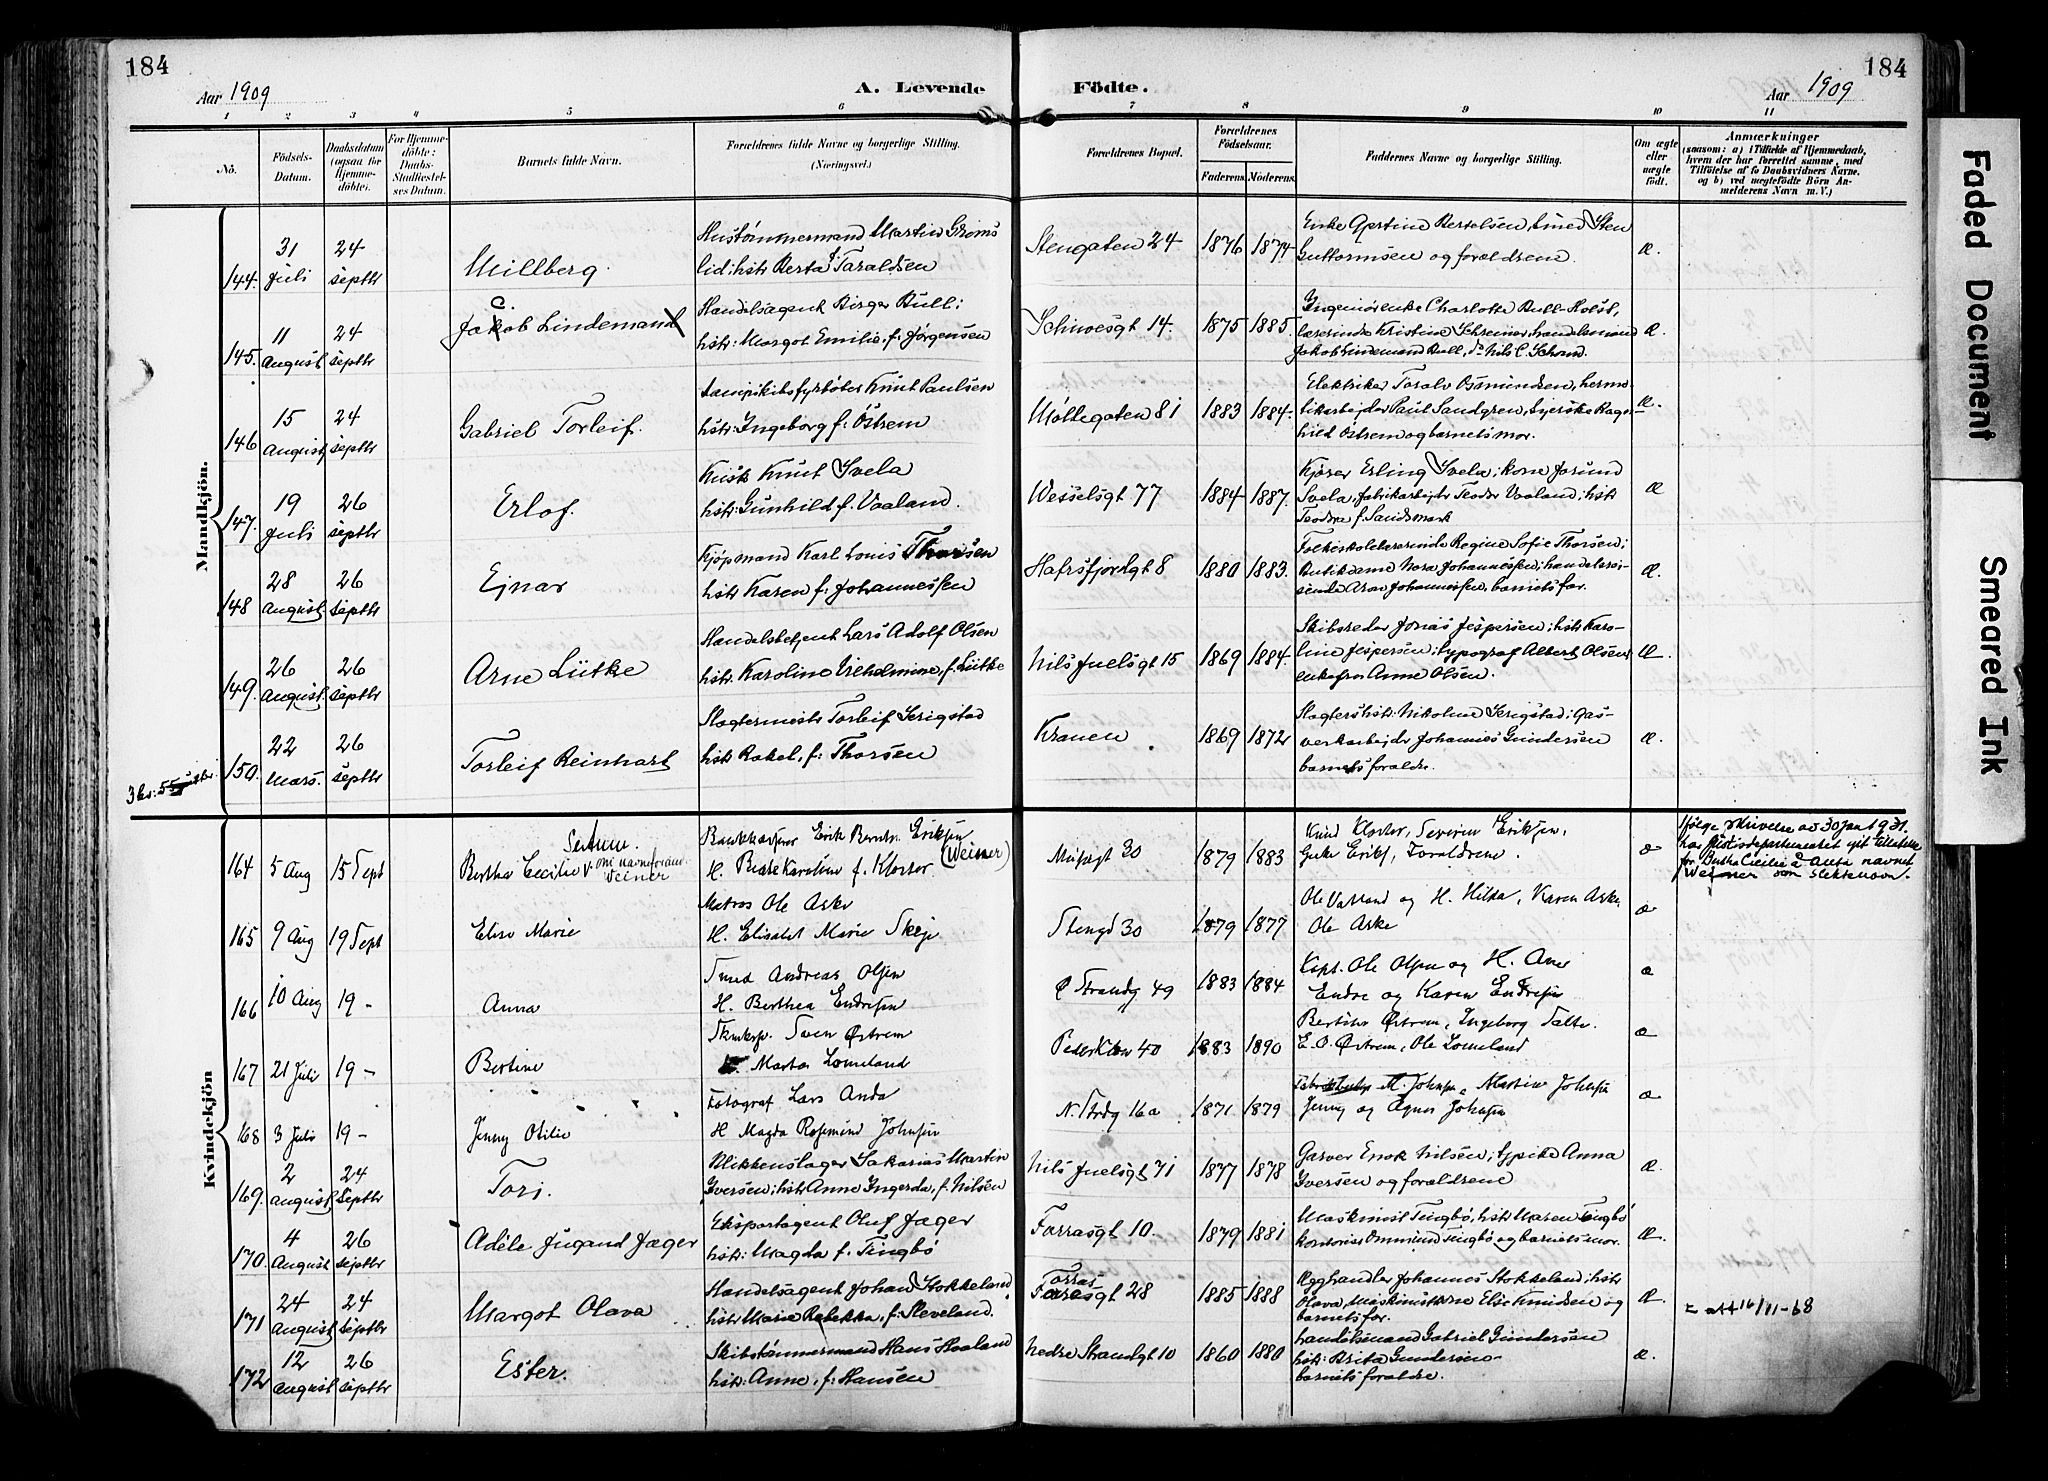 184
Aar 1909
A. Levende
Födte.
184
Aar 1909
1 2 3 4 5 6 7 8 9 10 11
No.
Födsels-
Datum.
Daabsdatum
(ogsaa for
Hjemme-
döbte).
For Hjemme-
döbte:
Daabs-
Stadfæstel-
ses Datum.
Barnets fulde Navn.
Forældrenes fulde Navne og borgerlige Stilling.
(Næringsvei.)
Forældrenes Bopæl.
Forældrenes
Födselsaar.
Faderens. Möderens.
Faddernes Navne og borgerlige Stilling.
Om ægte
eller
uægte
födt.
Anmærkninger
(saasom: a) i Tilfælde af Hjemmedaab,
hvem der har forrettet samme, med
Tilföielse af to Daabsvidners Navne,
og b) ved uægtefödte Börn An-
melderens Navn m. V.)
Mandkjön.
144. 31 Juli 24 septbr Millberg.
Hustømmermand Martin Gröms
lid; hstr Berta Taraldsen
Stengaten 24 1876 1874
Enke Gjertine Bertelsen, smed Sten
Guttormsen og forældrene.
Æ.
145. 11 August 24 septbr Jacob Lindeman
Handelsagent Birger Bull;
hstr: Margot Emilie, f: Jørgensen
Schivesgt 14. 1875 1885.
Ingeniørenke Charlotte Bull-Holst,
lærerinde Kristine Schreiner, handelsmand
Jakob Lindemand Bull, do Nils C. Schou.
Æ.
146 15 August 24 septbr Gabriel Torleif.
Dampskibsfyrbøter Knut Paulsen
hstr: Ingeborg f: Östrem
Møllegaten 81 1883 1884.
Elektriker Toralv Osmundsen, herme-
tikarbejder Paul Sandgren, syerske Ragn-
hild Östrem og barnets mor.
Æ.
147. 19 Juli 26 septbr Erlof.
Kusk Knut Svela
hstr: Gunhild f. Vaaland.
Wesselsgt 77 1884 1887.
Kjører Erling Svela; kone Josund
Svela, fabrikarbejder Teodor Vaaland; hstr
Teodora f. Sandsmark
Æ
148 28 August. 26 septbr Ejnar
Kjøpmand Karl Louis Thorsen
hstr Karen f: Johannessen
Hafrsfjordgt 8 1880 1883.
Folkeskolelærerinde Regine Sofie Thorsen;
Butikdame Nora Johannessen; handelsrei-
sende Aron Johannessen, barnets far.
Æ.
149. 26 August. 26 septbr Arne Lütke
Handelsbetjent Lars Adolf Olsen
hstr. Karoline Vilhelmine, f. Lütke
Nils Juelsgt 15 1869 1884.
Skibsreder Jonas Jespersen; hstr Karo-
line Jespersen; typograf Albert Olsen;
enkefru Anne Olsen.
Æ.
150. 22 Mars. 26 septbr Torleif Reinhart
Slagtermestr Torleif Serigstad
hstr Rakel, f: Thorsen
Kranen 1869 1872
Slagters hstr: Nikoline Serigstad; gas-
verkarbejder Johannes Gundersen
barnets forældre.
Æ.
Kvindekjön
164 5 Aug 15 Sept Bertha Cecilie
Weiner
Bankkasserer Erik Bernh. Eriksen
(Weiner)
H. Beate Karoline f. Kloster
Musægt 30 1879 1883
Knud Kloster, Severin Eriksen,
Forældrene.
æ
Ifølge skrivelse av 30 jan 1931.
har Justisdepartementet gitt tillatelse
for Bertha Cecilie å anta navnet
Weiner som slektsnavn.
165 9 Aug 19 Sept Elise Marie
Matros Ole Aske
H. Elisabet Marie Skeje
Stengd 30 1879 1877
Ole Vatland og H. Hilda, Karen Aske,
Ole Aske
æ
166 10 Aug 19 - Anna
Smed Andreas Olsen
H. Berthea Endresen
Ø Strandg 49 1883 1884
Kapt. Ole Olsen og H. Ane
Endre og Karen Endresen
æ
167 21 Juli 19 - Bertine
Sven Østrem
Marta Lomeland
Peder Klow 40 1883 1890
Østrem, Ingeborg Tatte.
E. O. Østrem, Ole Lomeland
æ
168 3 Juli 19 - Jenny Otilie
Fotograf Lars Anda
H Magda Rosemind Johnsen
N. Strdg 16a 1871. 1879
M. Johnsen, Martin Johnsen
Jenny og Agnes Johnsen
æ
169. 2 August 24 Septbr Tori.
Blikkenslager Sakarias Martin
Iversen; hstr Anne Ingerda, f. Nilsen
Nils Juelsgt 71 1877 1878
Garver Enok Nilsen; typike Anna
Iversen og forældrene
Æ.
170. 4 August 26 septbr Adéle Jugand Jæger
Eksportagent Oluf Jæger
hstr: Magda f. Tingbö
Torrasgt 10. 1879 1881
Maskinist Tingbö, hstr Maren Tingbö
kontorist Ommund Tingbö og barnets mor.
Æ.
171 24 August 24 septbr Margot Olava
Handelsagent Johan Stokkeland
hstr: Marie Rebekka, f: Sleveland.
Torras
gt 28 1885 1888
Ægghandler Johannes Stokkeland; hstr
Olava, Maskinisthstr Elise Knudsen og
barnets far.
Æ.
= att 16/11-68
172 12 August 26 septbr Ester.
Skibstømmermand Hans Haaland
hstr: Anne, f: Hansen
Nedre Strandgt 10 1860 1880
Handelsmand Gabriel Gundersen
hstr: Brita Gundersen
barnets forældre.
Æ.
Faded Document
Smeared Ink